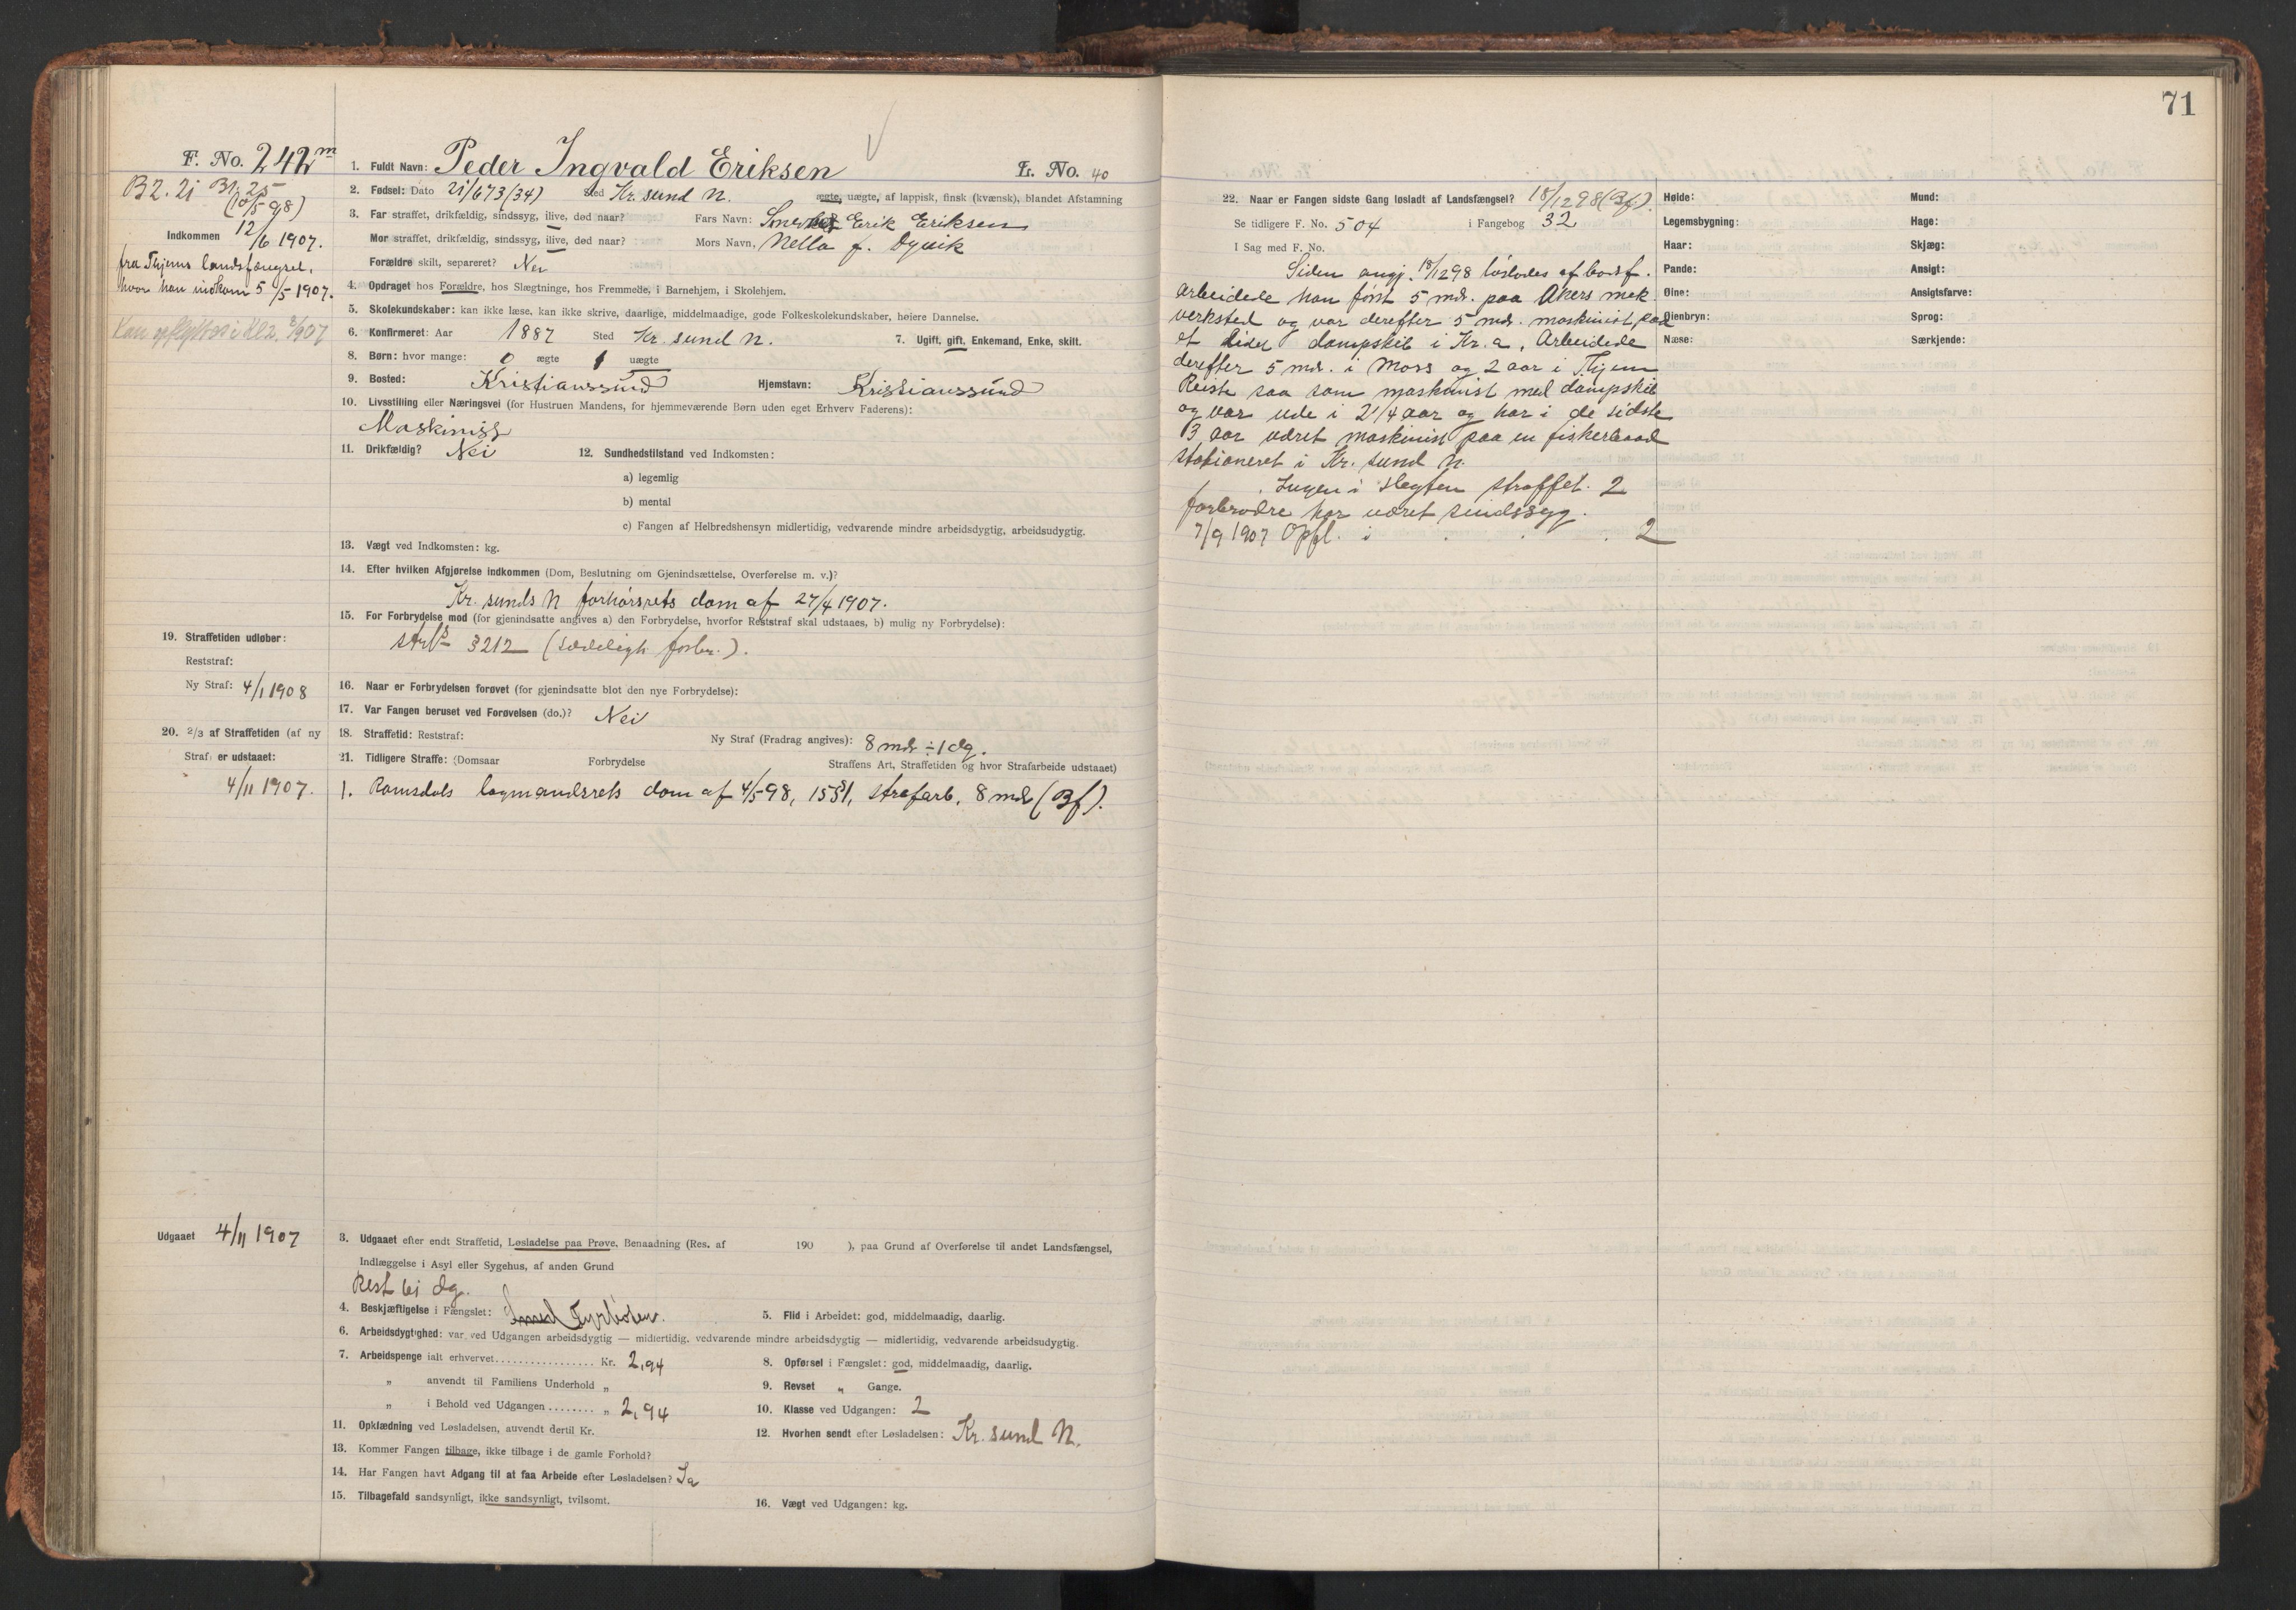 71
F. No. 242 m
B2. 21 B1, 25
(10/5 98)
Indkommen 12/6 1907.
fra Thjems landsfængsel,
hvor han indkom 5/5 1907.
Kan opflyttes i Kl 2.
1. Fuldt Navn: Peder Ingvald Eriksen L. No. 40
2. Fødsel: Dato 21/6 73 (34) Sted Kr. sund N. ægte, uægte, af lappisk, finsk (kvænsk), blandet Afstamning
3. Far straffet, drikfældig, sindssyg, ilive, død naar? Fars Navn: Erik Eriksen
Mor straffet, drikfældig, sindssyg, ilive, død naar? Mors Navn, Nella f. Dyvik
Forældre skilt, separeret? Nei
4. Opdraget hos Forældre, hos Slægtninge, hos Fremmede, i Barnehjem, i Skolehjem.
5. Skolekundskaber: kan ikke læse, kan ikke skrive, daarlige, middelmaadige, gode Folkeskolekundskaber, høiere Dannelse.
6. Konfirmeret: Aar 1887 Sted Kr. sund N. 7. Ugift, gift, Enkemand, Enke, skilt.
8. Børn: hvor mange: 0 ægte 1 uægte
9. Bosted: Kristianssund Hjemstavn: Kristianssund
10. Livsstilling eller Næringsvei (for Hustruen Mandens, for hjemmeværende Børn uden eget Erhverv Faderens):
Maskinist
11. Drikfældig? Nei 12. Sundhedstilstand ved Indkomsten:
a) legemlig
b) mental
c) Fangen af Helbredshensyn midlertidig, vedvarende mindre arbeidsdygtig, arbeidsudygtig.
13. Vægt ved Indkomsten: kg.
14. Efter hvilken Afgjørelse indkommen (Dom, Beslutning om Gjenindsættelse, Overførelse m. v.)?
Kr. sunds N forhørsrets dom af 27/4 1907.
15. For Forbrydelse mod (for gjenindsatte angives a) den Forbrydelse, hvorfor Reststraf skal udstaaes, b) mulig ny Forbrydelse):
strl § 212 (sædeligh forbr.).
19. Straffetiden udløber:
Reststraf:
Ny Straf: 4/1 1908
16. Naar er Forbrydelsen forøvet (for gjenindsatte blot den nye Forbrydelse):
17. Var Fangen beruset ved Forøvelsen (do.)? Nei
20. 2/3 af Straffetiden (af ny
Straf) er udstaaet:
4/11 1907.
18. Straffetid: Reststraf: Ny Straf (Fradrag angives): 8 mdr ÷ 1 dg.
21. Tidligere Straffe: (Domsaar Forbrydelse Straffens Art, Straffetiden og hvor Strafarbeide udstaaet)
1. Romsdals lagmandsrets dom af 4/5 98, 15 § 1, strafarb. 8 mdr (Bf).
Udgaaet 4/11 1907
3. Udgaaet efter endt Straffetid, Løsladelse paa Prøve, Benaadning (Res. af 190 ), paa Grund af Overførelse til andet Landsfængsel,
Indlæggelse i Asyl eller Sygehus, af anden Grund
Rest 61 dg.
4. Beskjæftigelse i Fængslet: Smed Fyrbøder. 5. Flid i Arbeidet: god, middelmaadig, daarlig.
6. Arbeidsdygtighed: var ved Udgangen arbeidsdygtig — midlertidig, vedvarende mindre arbeidsdygtig — midlertidig, vedvarende arbeidsudygtig.
7. Arbeidspenge ialt erhvervet................. Kr. 2,94 8. Opførsel i Fængslet: god, middelmaadig, daarlig.
„ anvendt til Familiens Underhold „ 9. Revset „ Gange.
„ i Behold ved Udgangen........ „ 2,94 10. Klasse ved Udgangen: 2
11. Opklædning ved Løsladelsen, anvendt dertil Kr. 12. Hvorhen sendt efter Løsladelsen: Kr. sund N.
13. Kommer Fangen tilbage, ikke tilbage i de gamle Forhold?
14. Har Fangen havt Adgang til at faa Arbeide efter Løsladelsen? Ja
15. Tilbagefald sandsynligt, ikke sandsynligt, tvilsomt. 16. Vægt ved Udgangen: kg.
22. Naar er Fangen sidste Gang løsladt af Landsfængsel? 18/12 98 (Bf).
Se tidligere F. No. 504 i Fangebog 32
I Sag med F. No.
Siden angj. 18/12 98 løslodes af bodsf.
arbeidede han først 5 mdr. paa Akers mek
verksted og var derefter 5 mdr. maskinist paa
et lidet dampskib i Kr.a, Arbeidede
derefter 5 mdr. i Moss og 2 aar i Thjem
Reiste saa som maskinist med dampskib
og var ude i 2 1/4 aar og har i de sidste
3 aar været maskinist paa en fiskerbaad
stationeret i Kr. sund N.
Ingen i slegten straffet. 2
farbrødre har været sindssyg.
7/9 1907 Opfl. i . . . 2
Høide: Mund:
Legemsbygning: Hage:
Haar: Skjæg:
Pande: Ansigt:
Øine: Ansigtsfarve:
Øienbryn: Sprog:
Næse: Særkjende: